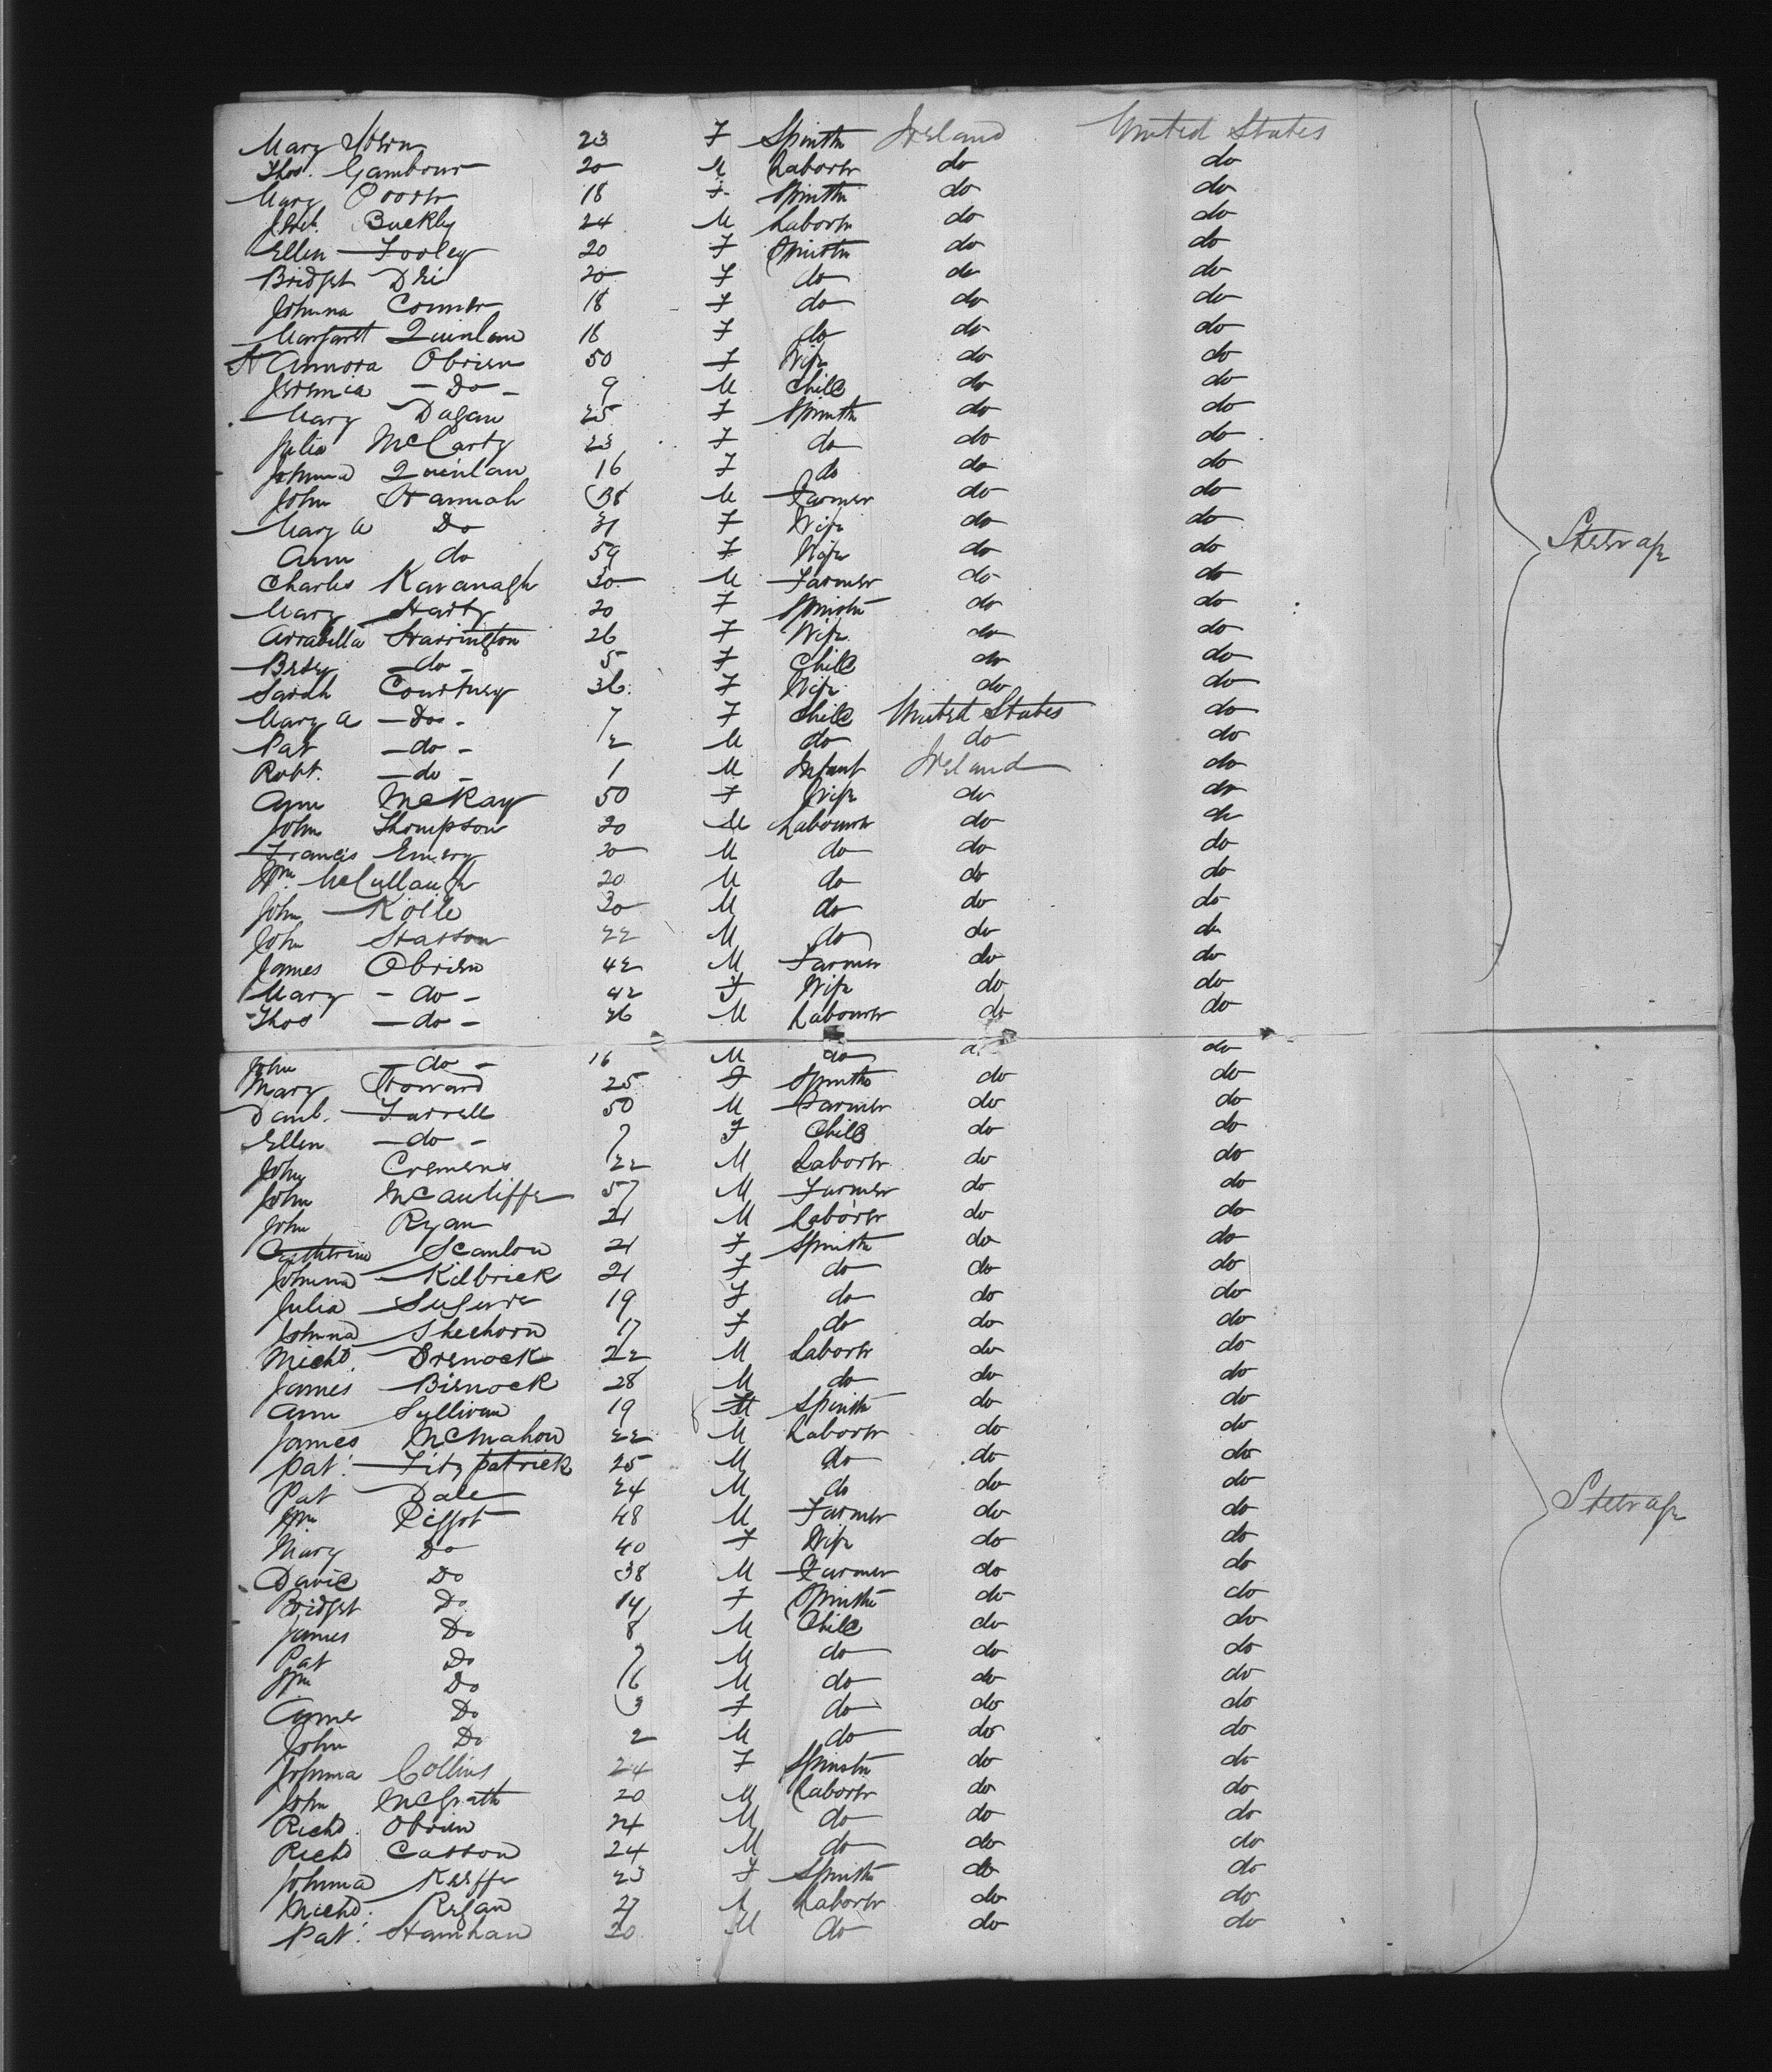 Mary 23 F Spinstr Ireland United States
Thos. 20 M Laborer do do
Mary 18 F Spinstr do do
Buckly 24 M Laborr do do
Ellen Fooley 20 F Spinstr do do
Bridget 20 F do do do
Johnna Conner 18 F do do do
Margarett Quinlan 18 F do do do
Obrien 50 F Wife do do
Jeremia - Do - 9 M Child do do
Mary Dugan 25 F Spinstr do do
Julia McCarty 23 F do do do
Johnna Quinlan 16 F do do do
John Hannah 38 M Farmer do do
Mary A Do 31 F Wife do do
Ann do 59 F Wife do do
Charles Kavanagh 30 M Farmer do do
Mary Harty 20 F Spinstr do do
Arrabella Harrington 26 F Wife do do
Betsy - do - 5 F Child do do
Sarah Courtney 36 F Wife do do
Mary A - Do - 7 F Child United States do
Pat - do - 2 M do do do
Robt. - do - 1 M Infant Ireland do
Ann McKay 50 F Wife do do
John Thompson 20 M Labourer do do
Francis Emery 20 M do do do
Wm McCullaugh 20 M do do do
John 30 M do do do
John 22 M do do do
James Obrien 42 M Farmer do do
Mary - do - 42 F Wife do do
Thos - do - M Labourer do do
Steerage
John - do - 16 M do do
Mary Howard 25 F Spinstr do do
Danl. Farrell 50 M Farmer do do
Ellen - do - 7 F Child do do
John Cremens 22 M Laborer do do
John McAuliffe 57 M Farmer do do
John Ryan 21 M Laborer do do
Catherine Scanlon 21 F Spinstr do do
Johnna Kilbrick 21 F do do do
Julia 19 F do do do
Johnna Sheehorn 17 F do do do
Michl. 22 M Laborer do do
James Birnock 28 M do do do
Ann Sullivan 19 Spinstr do do
James McMahon 22 M Laborer do do
Pat. Fitzpatrick 25 M do do do
Pat Dale 24 M do do do
Wm Piggot 48 M Farmer do do
Mary Do 40 F Wife do do
David Do 38 M Farmer do do
Bridget Do 14 F Spinstr do do
James Do 8 M Child do do
Pat Do 7 M do do do
Wm Do 6 M do do do
Do 3 F do do do
John Do 2 M do do do
Johnna Collins 24 F Spinstr do do
John McGrath 20 M Laborer do do
Richd. Obrien 24 M do do do
Richd Casson 24 M do do do
Johnna Keeffe 23 F Spinstr do do
Michd. Regan 27 M Laborer do do
Pat. 20 M do do do
Steerage